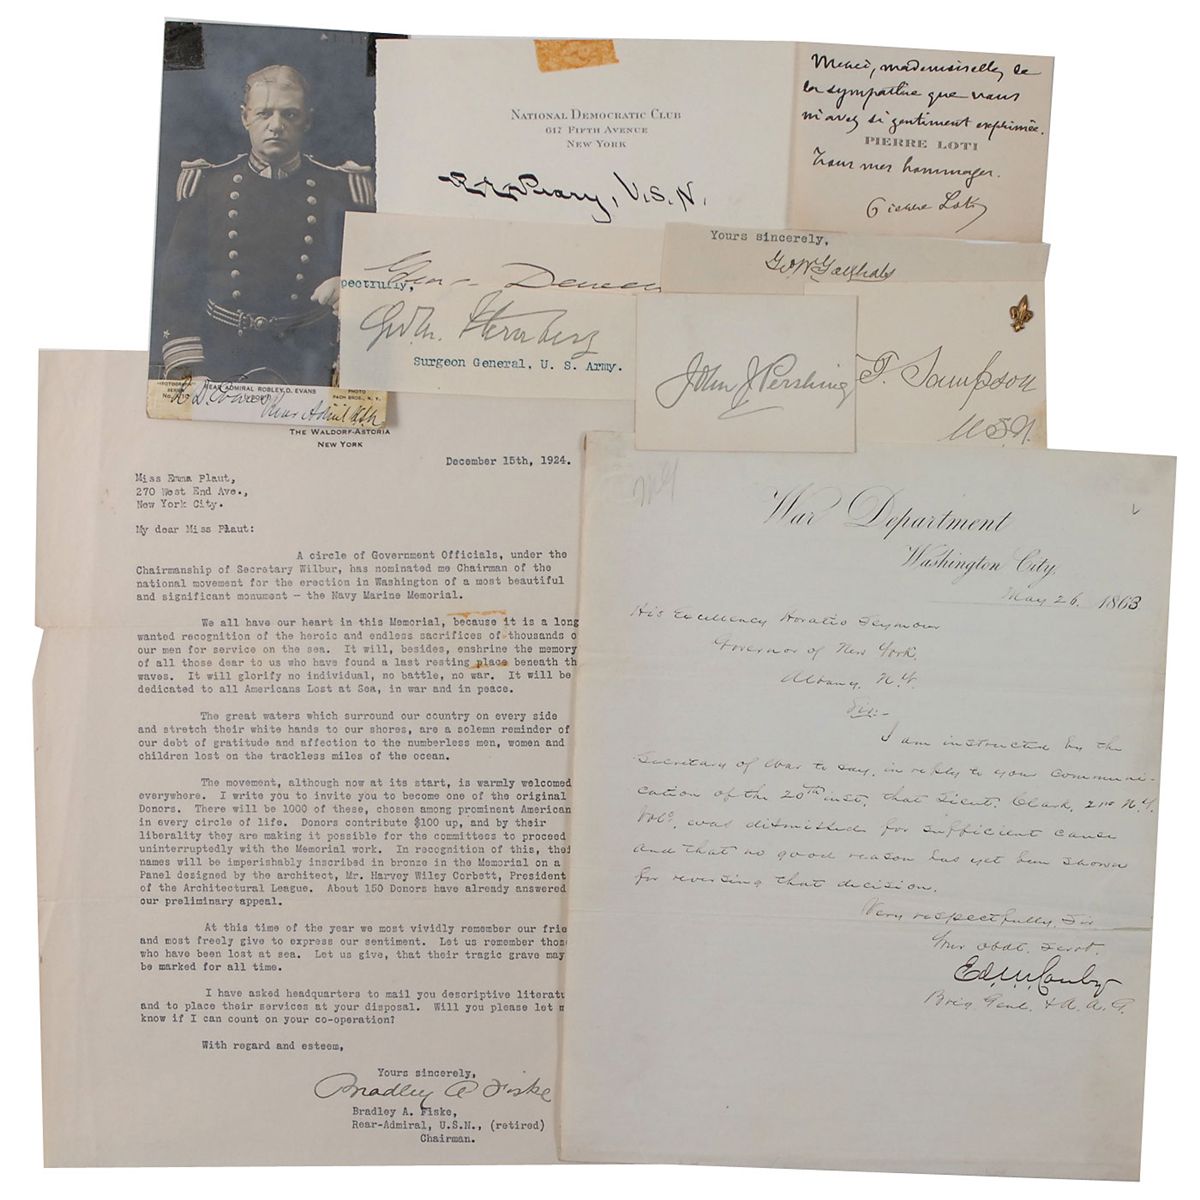 REAR ADMIRAL ROBLEY D. EVANS
PHOTO
PACH BROS., N. Y.
R. D. Evans
Rear Admiral U.S.N.
NATIONAL DEMOCRATIC CLUB
617 FIFTH AVENUE
NEW YORK
R. E. Peary, U.S.N.
Merci, mademoiselle, de
la sympathie que vous
m'avez si gentiment exprimée.
PIERRE LOTI
Tous mes hommages.
Pierre Loti
pectfully,
Geo. M. Sternberg
Surgeon General, U. S. Army.
Yours sincerely,
Geo W Goethals
John J. Pershing
T. Sampson
U.S.N.
THE WALDORF-ASTORIA
NEW YORK
December 15th, 1924.
Miss Emma Plaut,
270 West End Ave.,
New York City.
My dear Miss Plaut:
A circle of Government Officials, under the
Chairmanship of Secretary Wilbur, has nominated me Chairman of the
national movement for the erection in Washington of a most beautiful
and significant monument - the Navy Marine Memorial.
We all have our heart in this Memorial, because it is a long
wanted recognition of the heroic and endless sacrifices of thousands o
our men for service on the sea. It will, besides, enshrine the memory
of all those dear to us who have found a last resting place beneath th
waves. It will glorify no individual, no battle, no war. It will be
dedicated to all Americans Lost at Sea, in war and in peace.
The great waters which surround our country on every side
and stretch their white hands to our shores, are a solemn reminder of
our debt of gratitude and affection to the numberless men, women and
children lost on the trackless miles of the ocean.
The movement, although now at its start, is warmly welcomed
everywhere. I write you to invite you to become one of the original
Donors. There will be 1000 of these, chosen among prominent American
in every circle of life. Donors contribute $100 up, and by their
liberality they are making it possible for the committees to proceed
uninterruptedly with the Memorial work. In recognition of this, thei
names will be imperishably inscribed in bronze in the Memorial on a
Panel designed by the architect, Mr. Harvey Wiley Corbett, President
of the Architectural League. About 150 Donors have already answered
our preliminary appeal.
At this time of the year we most vividly remember our frie
and most freely give to express our sentiment. Let us remember thos
who have been lost at sea. Let us give, that their tragic grave may
be marked for all time.
I have asked headquarters to mail you descriptive literatu
and to place their services at your disposal. Will you please let m
know if I can count on your co-operation?
With regard and esteem,
Yours sincerely,
Bradley A Fiske
Bradley A. Fiske,
Rear-Admiral, U.S.N., (retired)
Chairman.
War Department
Washington City,
May 26, 1863
His Excellency Horatio Seymour
Governor of New York,
Albany, N.Y.
Sir:-
I am instructed by the
Secretary of War to say, in reply to your communi-
cation of the 20th inst, that Lieut. Clark, 21st N.Y.
Vols, was dismissed for sufficient cause
and that no good reason has yet been shown
for reversing that decision.
Very respectfully, Sir
Your obdt. Servt.
Ed. R. S. Canby
Brig Genl. & A. A. G.